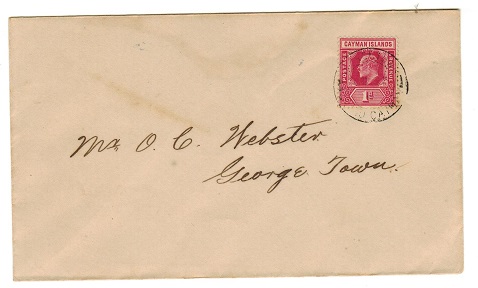 CAYMAN ISLANDS
POSTAGE
REVENUE
1D
Mr O. C. Webster
George Town.